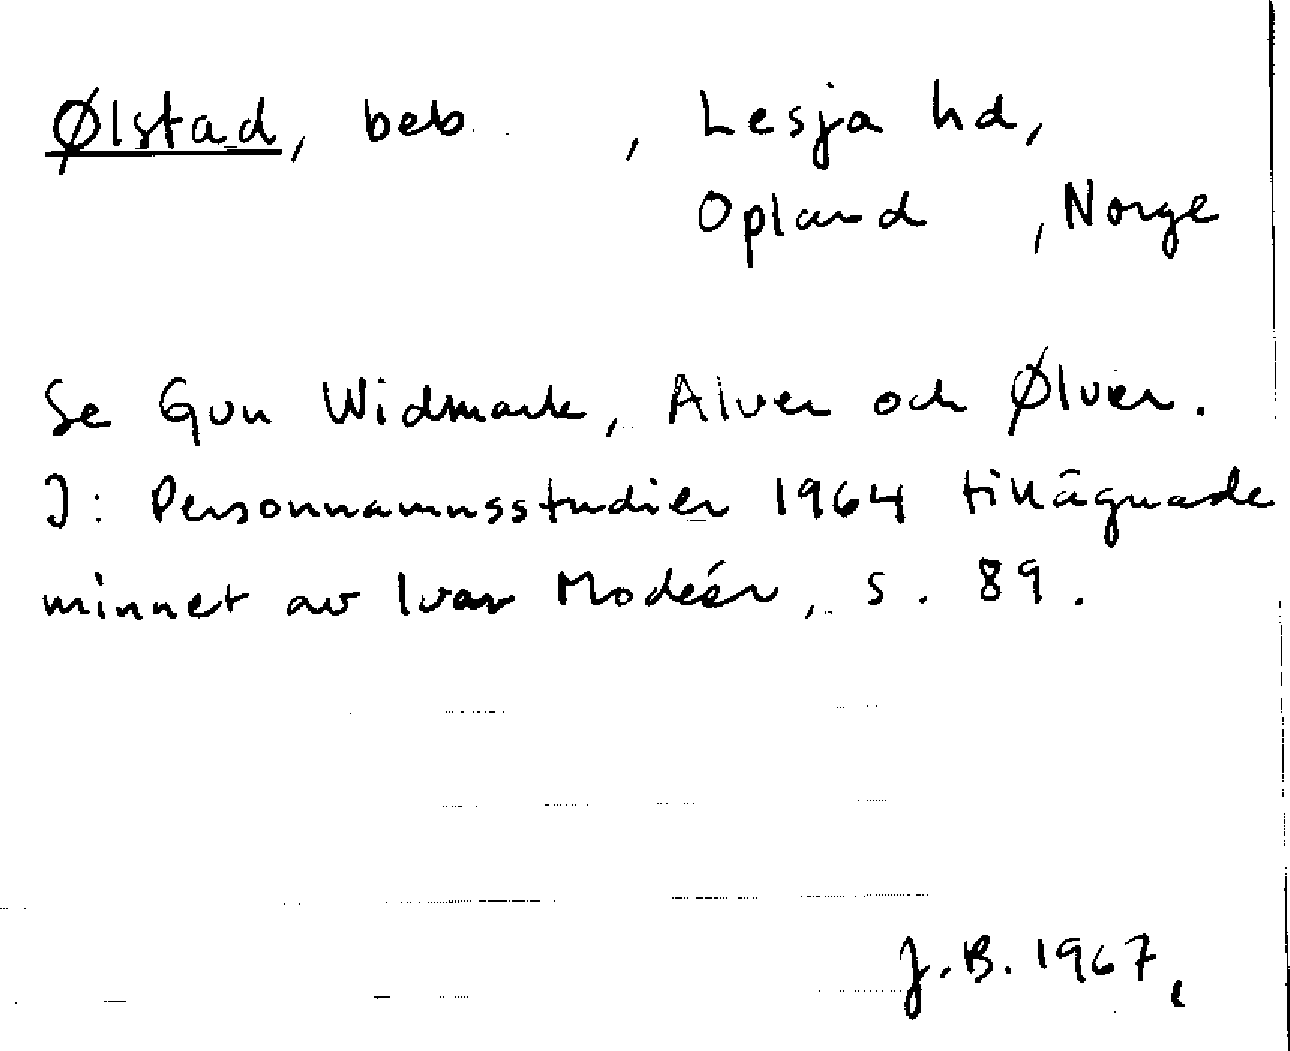 Ølstad, beb , Lesja hd,
Opland , Norge
Se Gun Widmark, Alver och Ølver.
I: Personnamnsstudier 1964 tillägnade
minnet av Ivar Modéer, s. 89.
J.B. 1967.